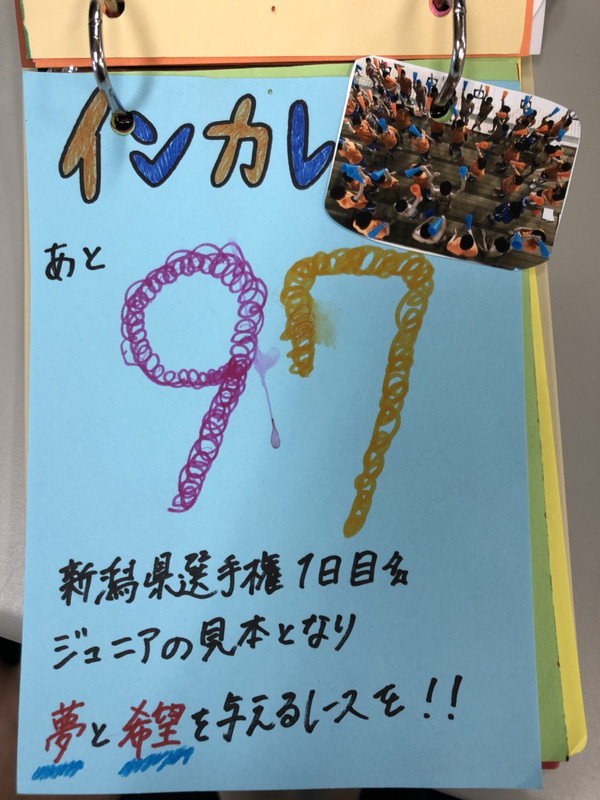 インカレ
あと
97
新潟県選手権1日目
ジュニアの見本となり
夢と希望を与えるレースを!!